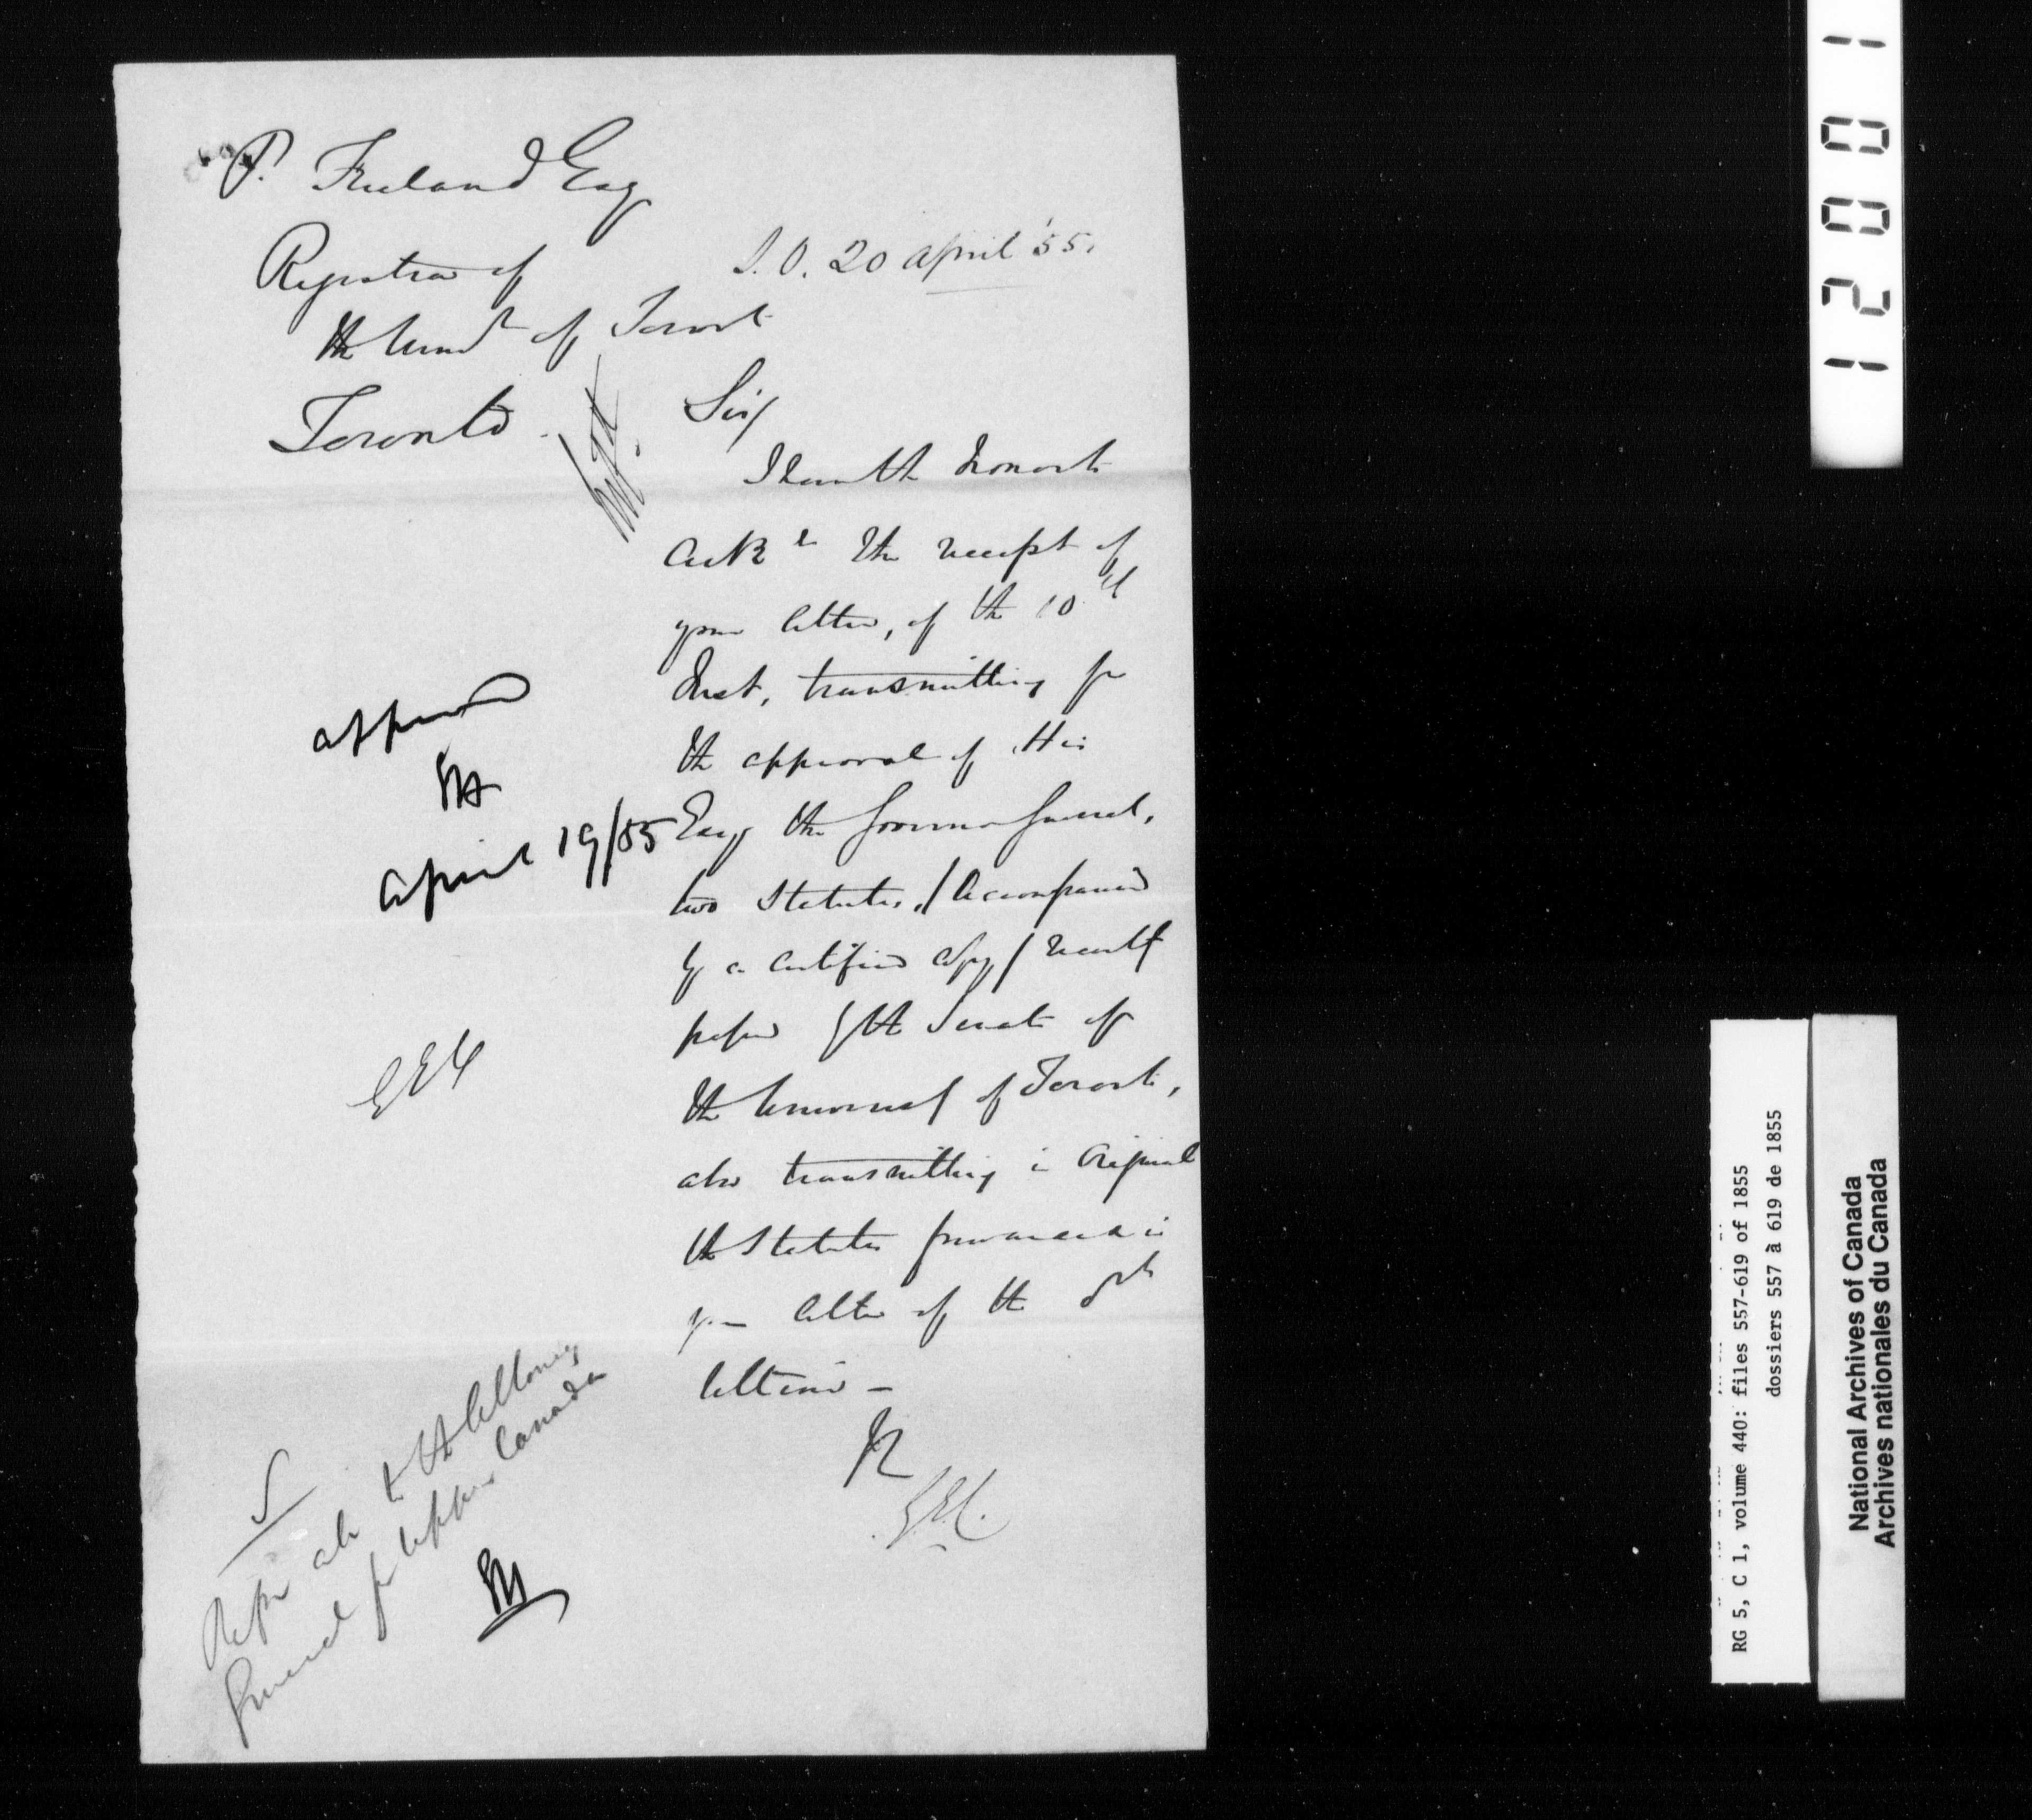 P. Freeland Esq
Registrar of
the Univ of Toronto
Toronto.
S.O. 20 April '55.
Sir/
I have the honor to
ackge the receipt of
your letter, of the 10th
Inst, transmitting for
the approval of His
Excy the Governor General,
two Statutes, / accompanied
by a certified copy / recently
passed by the Senate of
the University of Toronto,
also transmitting in original
the Statutes forwarded in
your letter of the
ultimo -
approved
EH
April 19/55
GEC
S
Refer also to the Attorney
General for Upper Canada
EH
G.E.C.
12001
RG 5, C 1, volume 440: files 557-619 of 1855
dossiers 557 à 619 de 1855
National Archives of Canada
Archives nationales du Canada